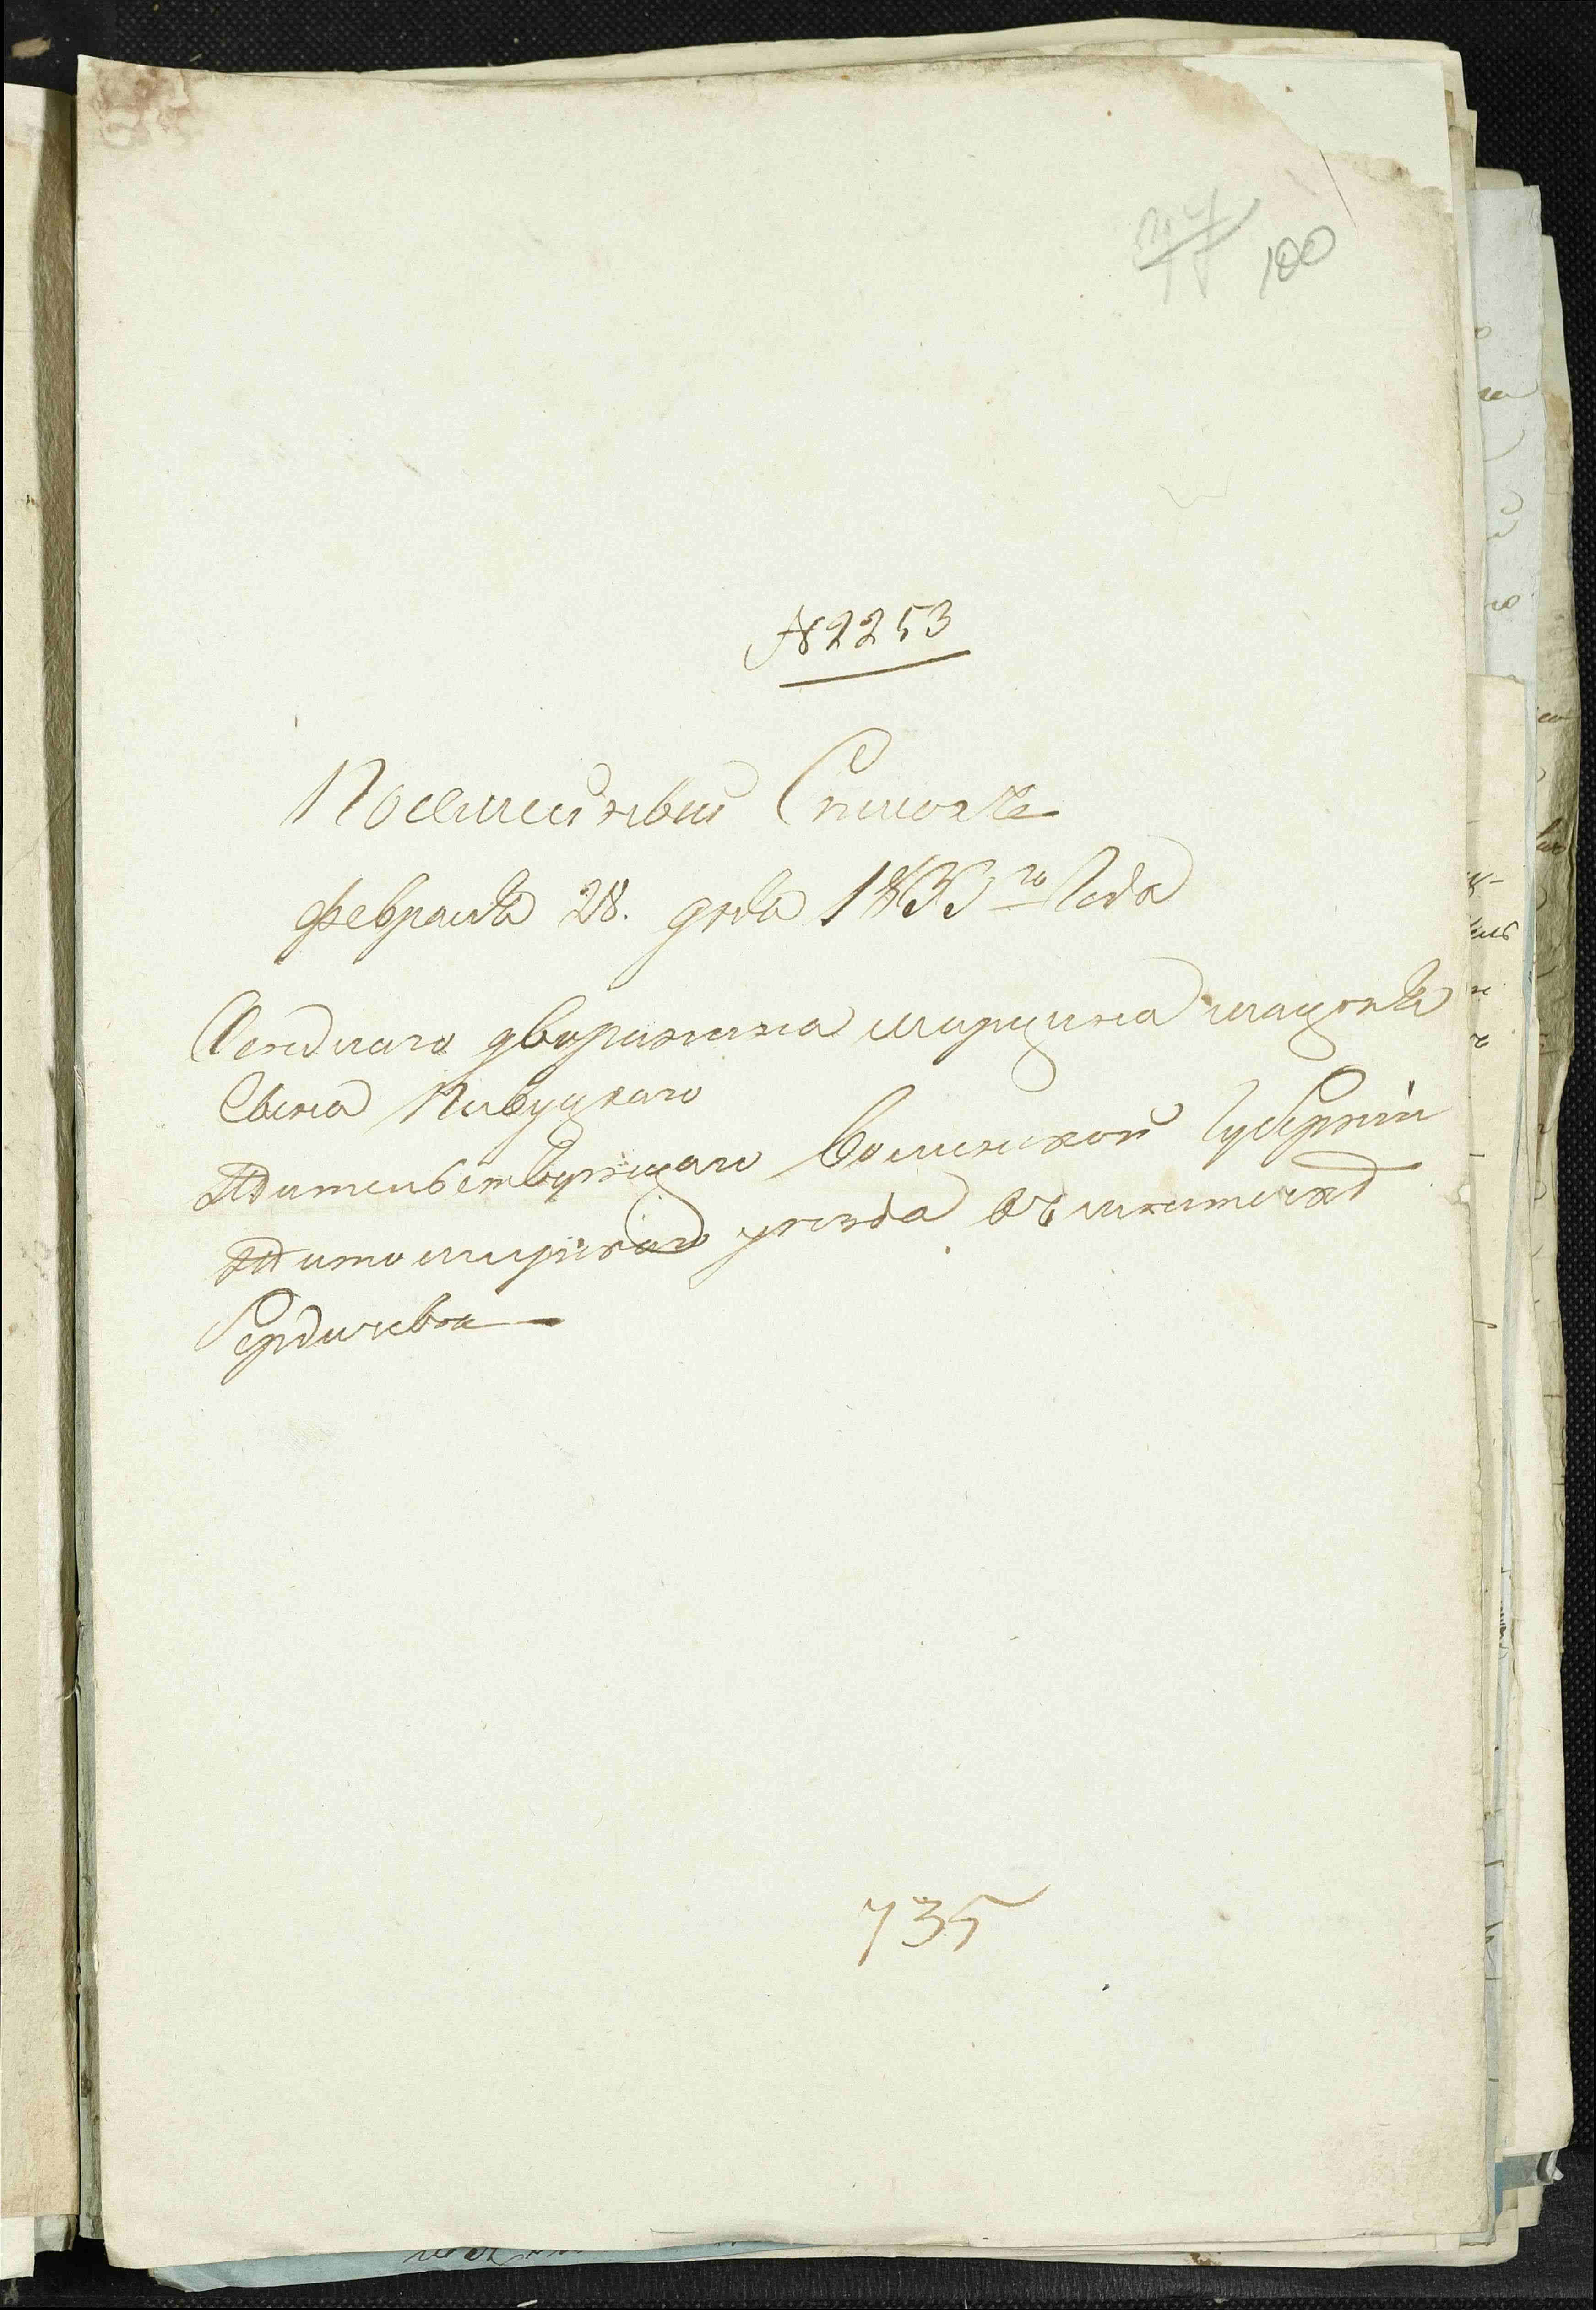 100
№ 2253
Посемейный Списокъ
февраля 28. дня 1835го Года
дворянина марцина мацея
Сына Пивуцкаго
Жительствующаго волинской Губерніи
Житомирскаго уезда въ мистечке
Бердичева
735